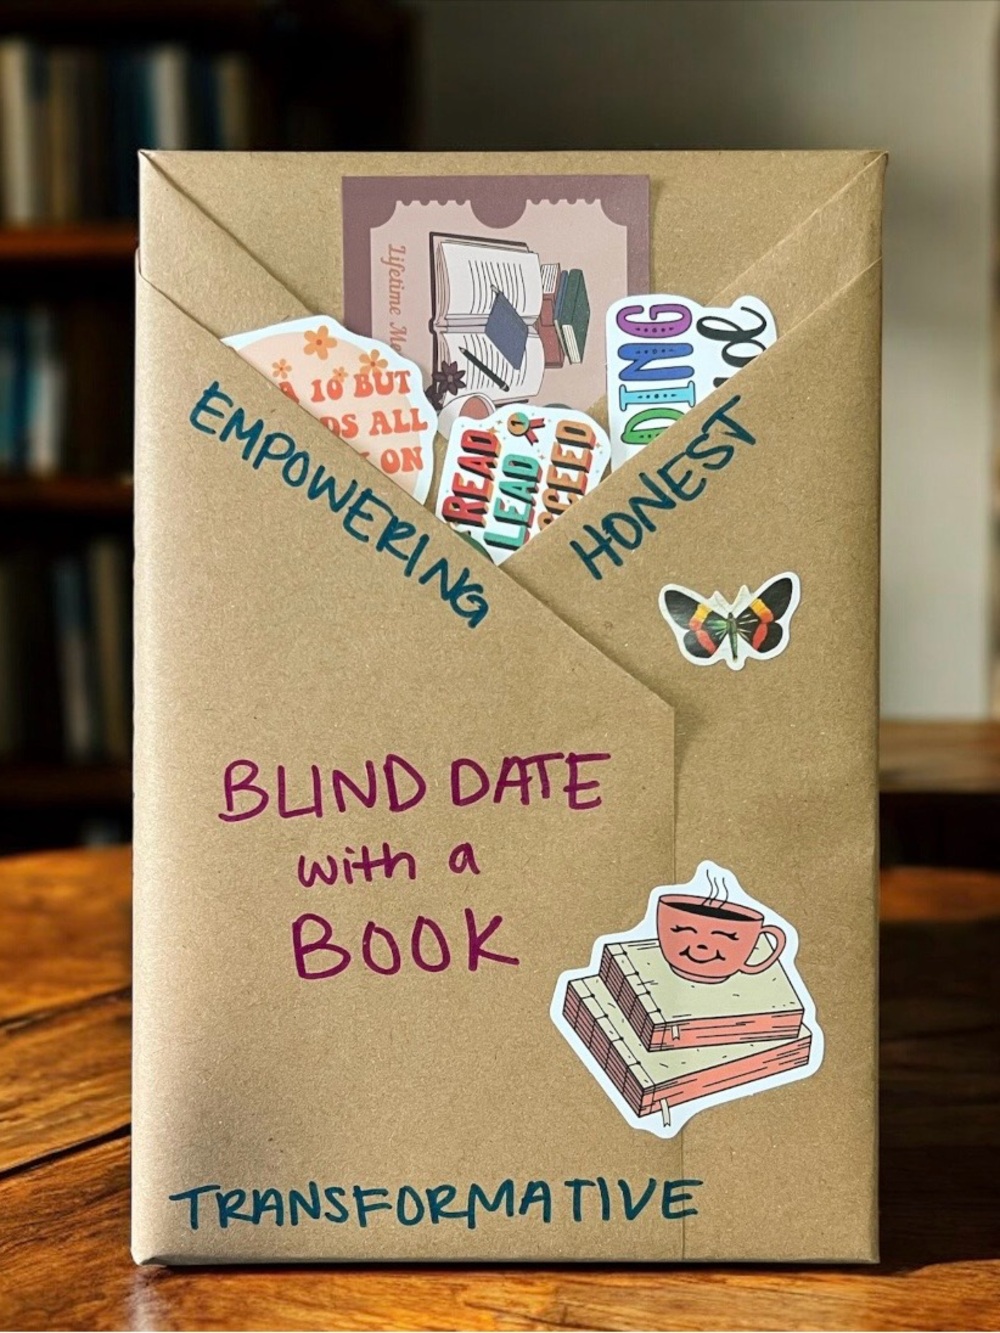 Lifetime
A 10 BUT
ALL
ON
READ
LEAD
EMPOWERING
HONEST
BLIND DATE
with a
BOOK
TRANSFORMATIVE